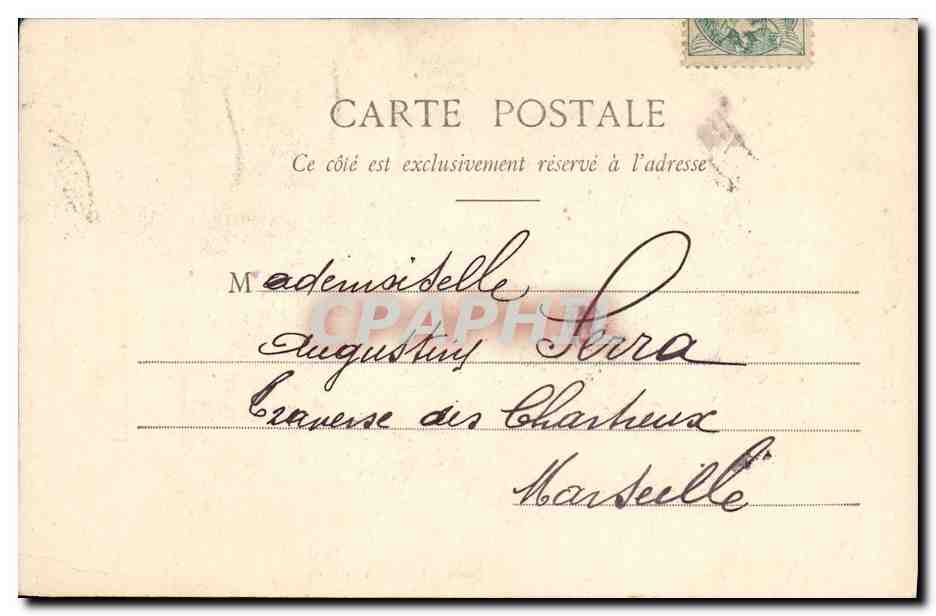 CARTE POSTALE
Ce côté est exclusivement réservé à l'adresse
Mademoiselle
CPAPHIL
Augustine Serra
Traverse des Chartreux
Marseille